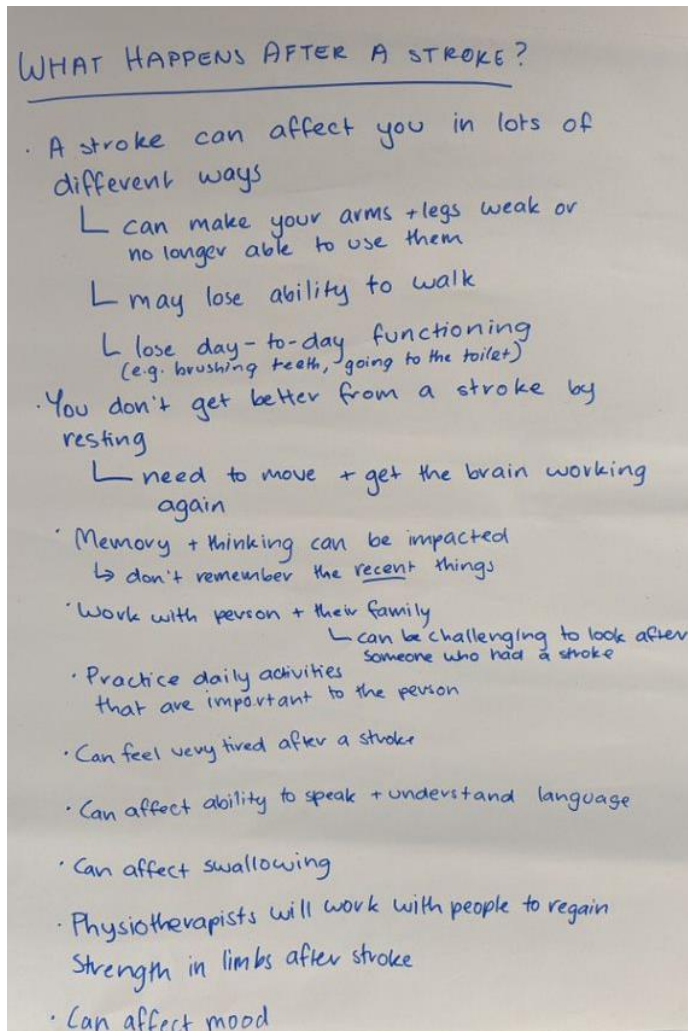 WHAT HAPPENS AFTER A STROKE?
· A stroke can affect you in lots of
different ways
└ can make your arms + legs weak or
no longer able to use them
└ may lose ability to walk
└ lose day-to-day functioning
(e.g. brushing teeth, going to the toilet)
· You don't get better from a stroke by
resting
└ need to move + get the brain working
again
· Memory + thinking can be impacted
↳ don't remember the recent things
· Work with person + their family
└ can be challenging to look after
someone who had a stroke
· Practice daily activities
that are important to the person
· Can feel very tired after a stroke
· Can affect ability to speak + understand language
· Can affect swallowing
· Physiotherapists will work with people to regain
Strength in limbs after stroke
· Can affect mood